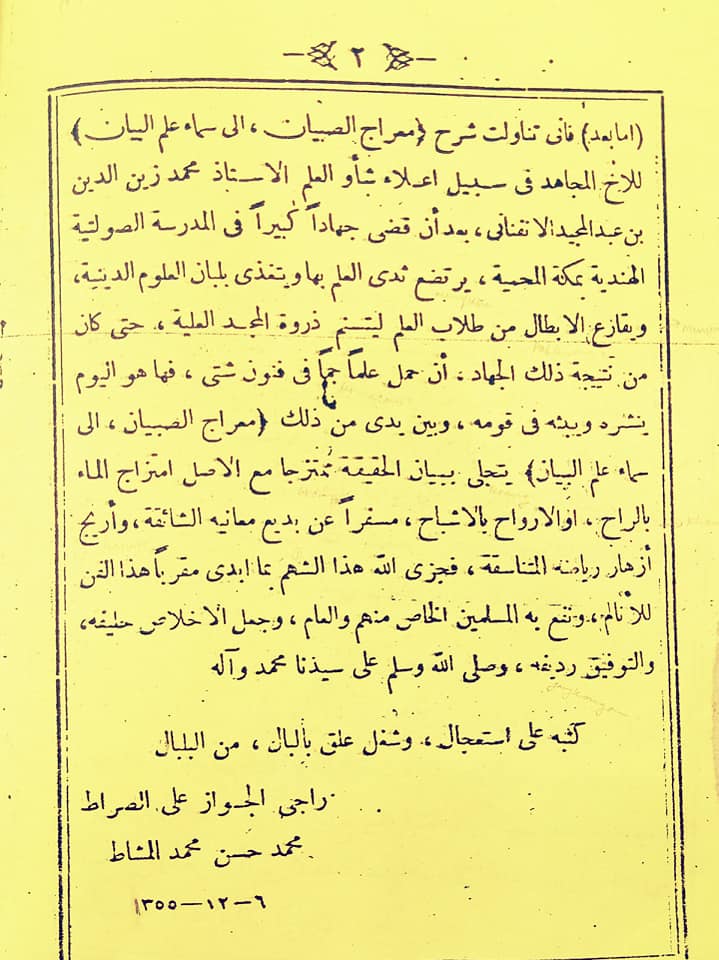 ٢
(اما بعد) فانى تناولت شرح (معراج الصبيان ، الى سماء علم البيان)
للاخ المجاهد فى سبيل اعلاء شأو العلم الاستاذ محمد زين الدين
بن عبد المجيد الانفنانى ، بعد أن قضى جهاداً كبيراً فى المدرسة الصولتية
الهندية بمكة المحمية ، يرتضع ثدى العلم بها ويتغذى بلبان العلوم الدينية ،
ويقارع الابطال من طلاب العلم ليتسنم ذروة المجد العلية ، حتى كان
من نتيجة ذلك الجهاد ، أن حمل علماً جماً فى فنون شتى ، فها هو اليوم
ينشره ويبثه فى قومه ، وبين يدى من ذلك (معراج الصبيان ، الى
سماء علم البيان) يتجلى ببيان الحقيقة ممتزجا مع الاصل امتزاج الماء
بالراح ، اوالارواح بالاشباح ، مسفراً عن بديع معانيه الشائقة ، وأريج
أزهار رياضه المتناسقة ، فجزى الله هذا الشهم بما ابدى مقرباً هذا الفن
للأنام ، ونفع به المسلمين الخاص منهم والعام ، وجعل الاخلاص حليفه ،
والتوفيق رديفه ، وصلى الله وسلم على سيدنا محمد وآله
كتبه على استعجال ، وشغل علق بالبال ، من البلبال
راجى الجواز على الصراط
محمد حسن محمد المشاط
٦-١٢-١٣٥٥